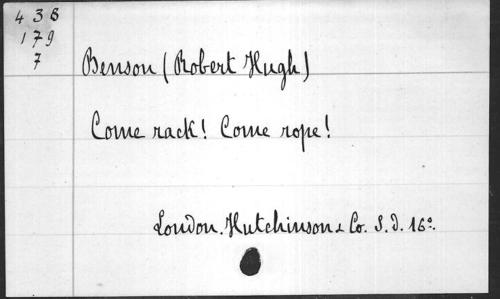 438
179
7
Benson (Robert Hugh)
Come rack! Come rope!
London. Hutchinson & Co. S. d. 16º.